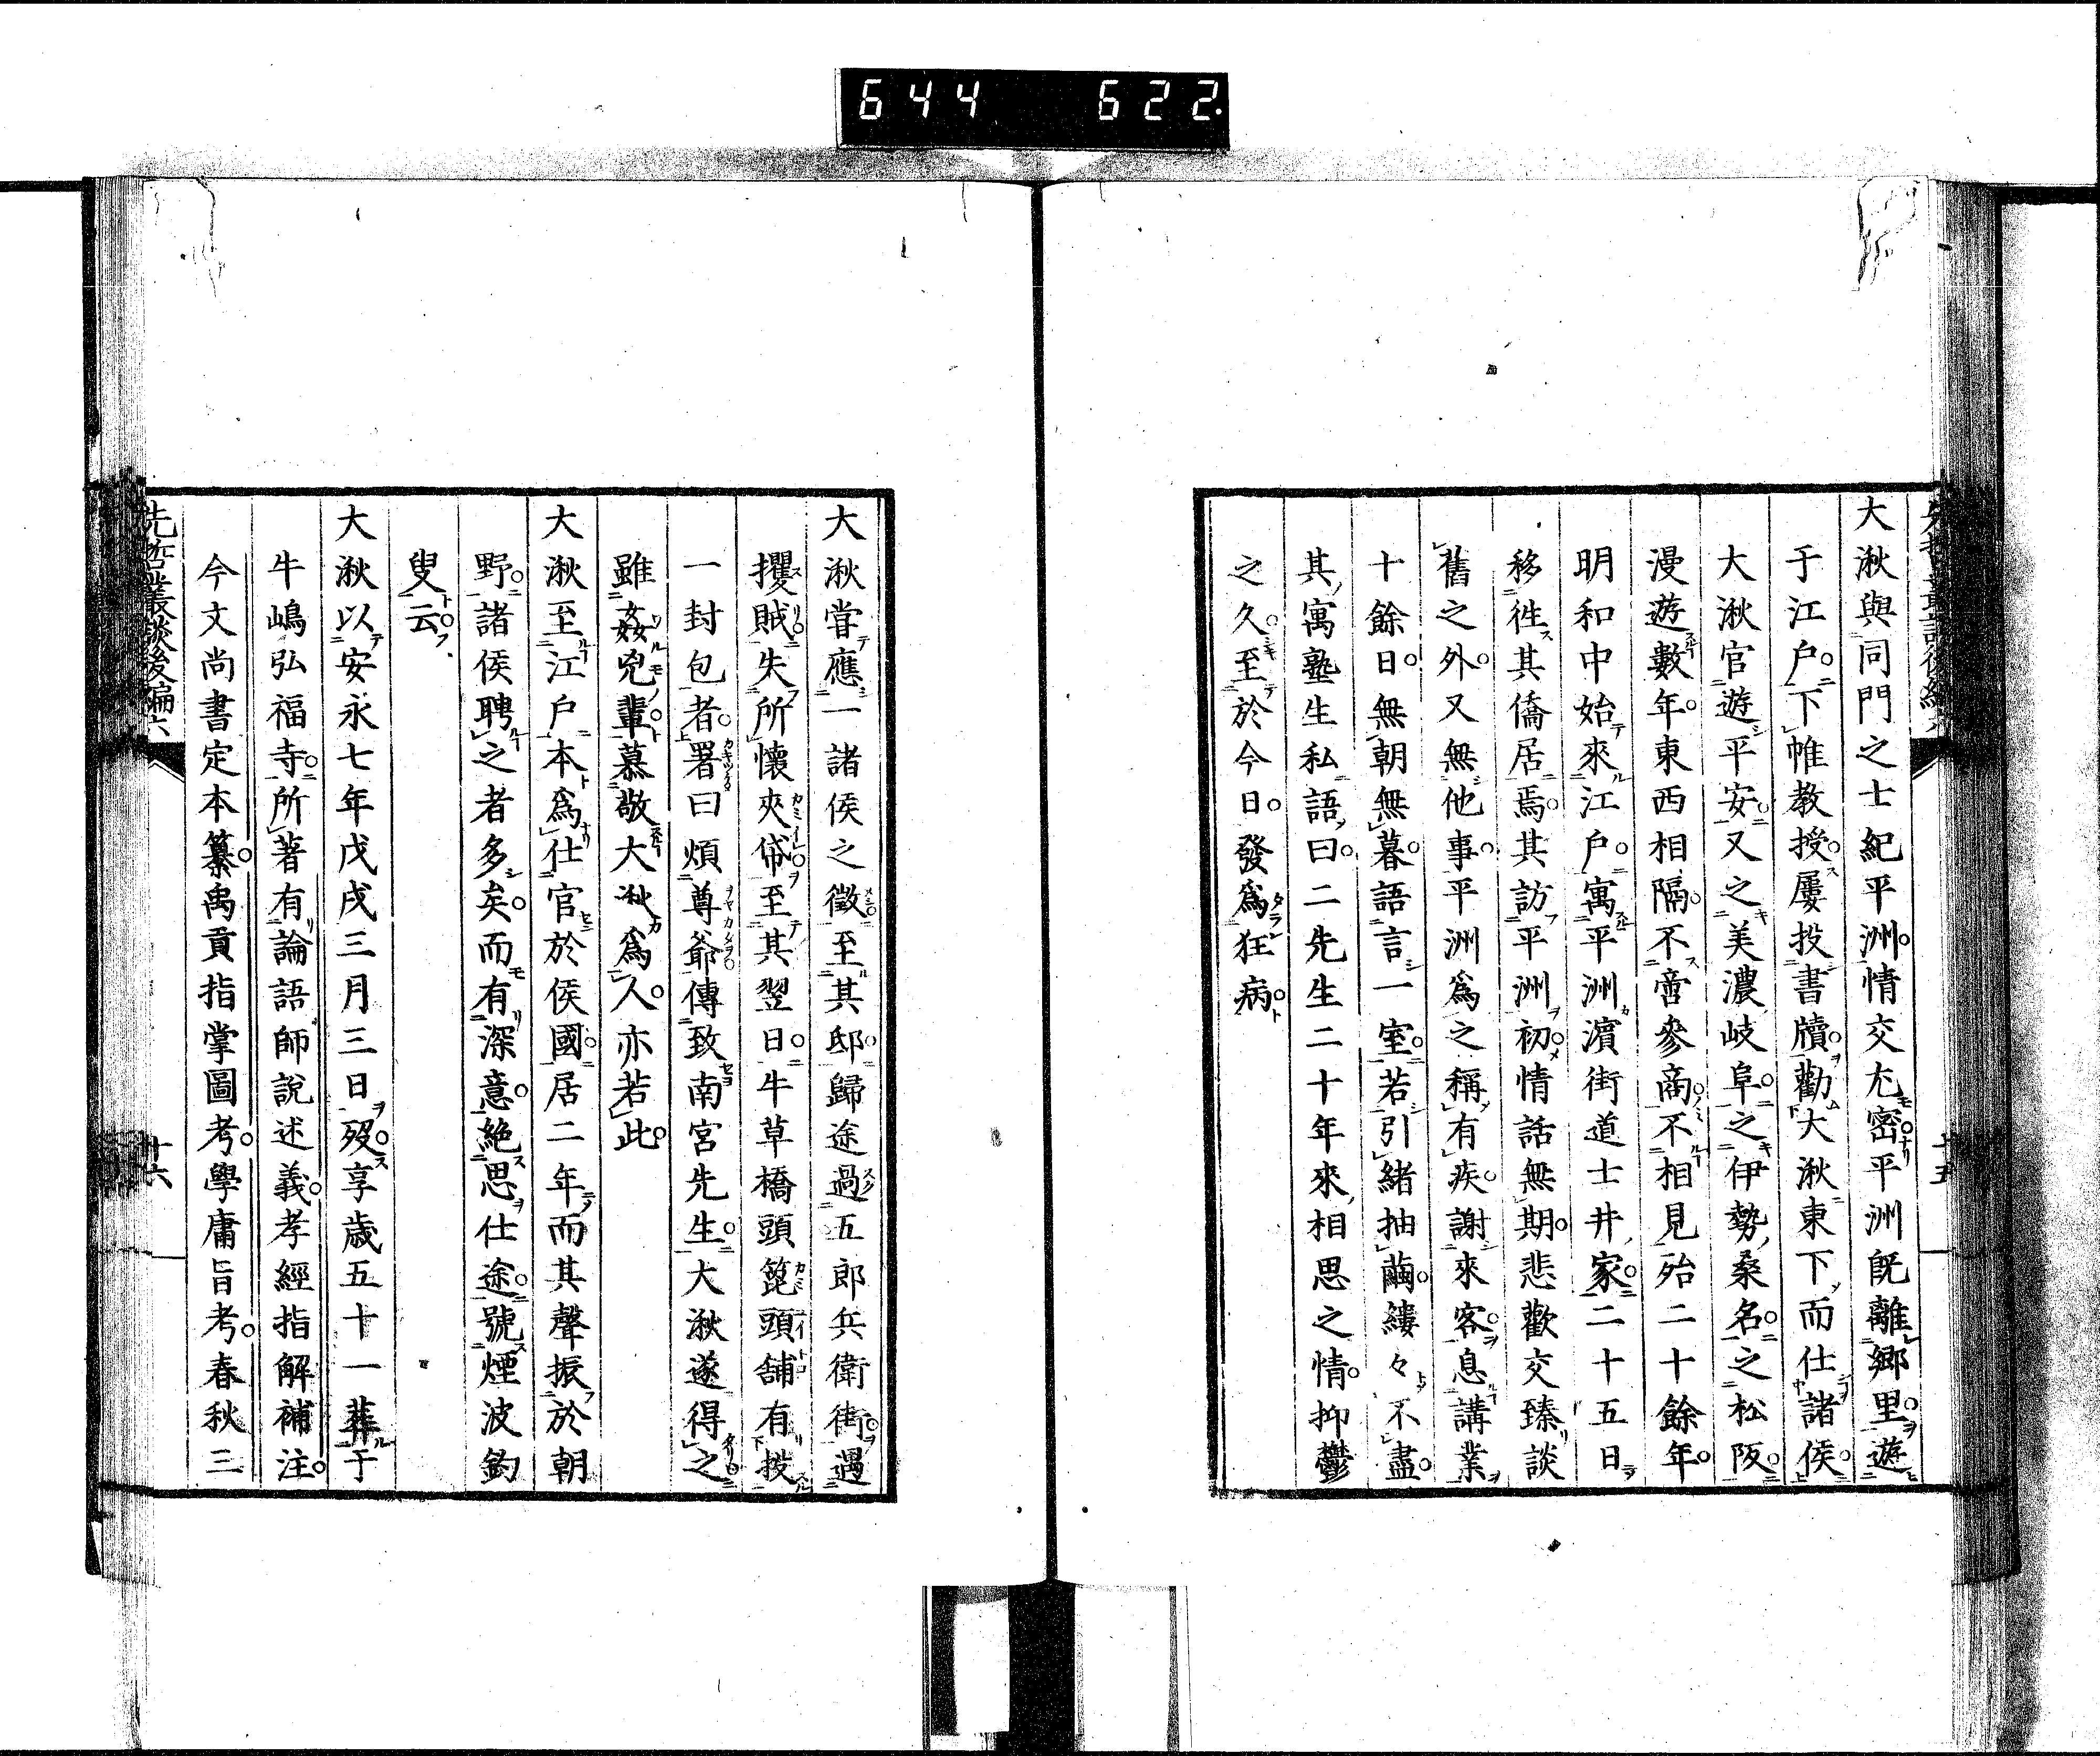 644 622
大湫與同門之士紀平洲情交尤密平洲既離鄉里遊
于江戶下帷教授屢投書牘勸大湫東下而仕諸侯
大湫官遊平安又之美濃岐阜之伊勢桑名之松阪
漫遊數年東西相隔不啻參商不相見殆二十餘年
明和中始來江戶寓平洲濵街道士井家二十五日
移徃其僑居焉其訪平洲初情話無期悲歡交臻談
舊之外又無他事平洲為之稱有疾謝來客息講業
十餘日無朝無暮語言一室若引緒抽繭縷々不盡
其寓塾生私語曰二先生二十年來相思之情抑鬱
之久至於今日發為狂病
大湫甞應一諸侯之徵至其邸歸途過五郎兵衛街遇
攫賊失所懷夾帒至其翌日牛草橋頭箆頭舖有投
一封包者署曰煩尊爺傳致南宮先生大湫遂得之
雖姦兇輩慕敬大湫為人亦若此
大湫至江戶本為仕官於侯國居二年而其聲振於朝
野諸侯聘之者多矣而有深意絕思仕途號煙波釣
叟云
大湫以安永七年戊戌三月三日歿享歲五十一葬于
牛嶋弘福寺所著有論語師說述義孝經指解補注
今文尚書定本纂禹貢指掌圖考學庸旨考春秋三
先哲叢談後編六
十六